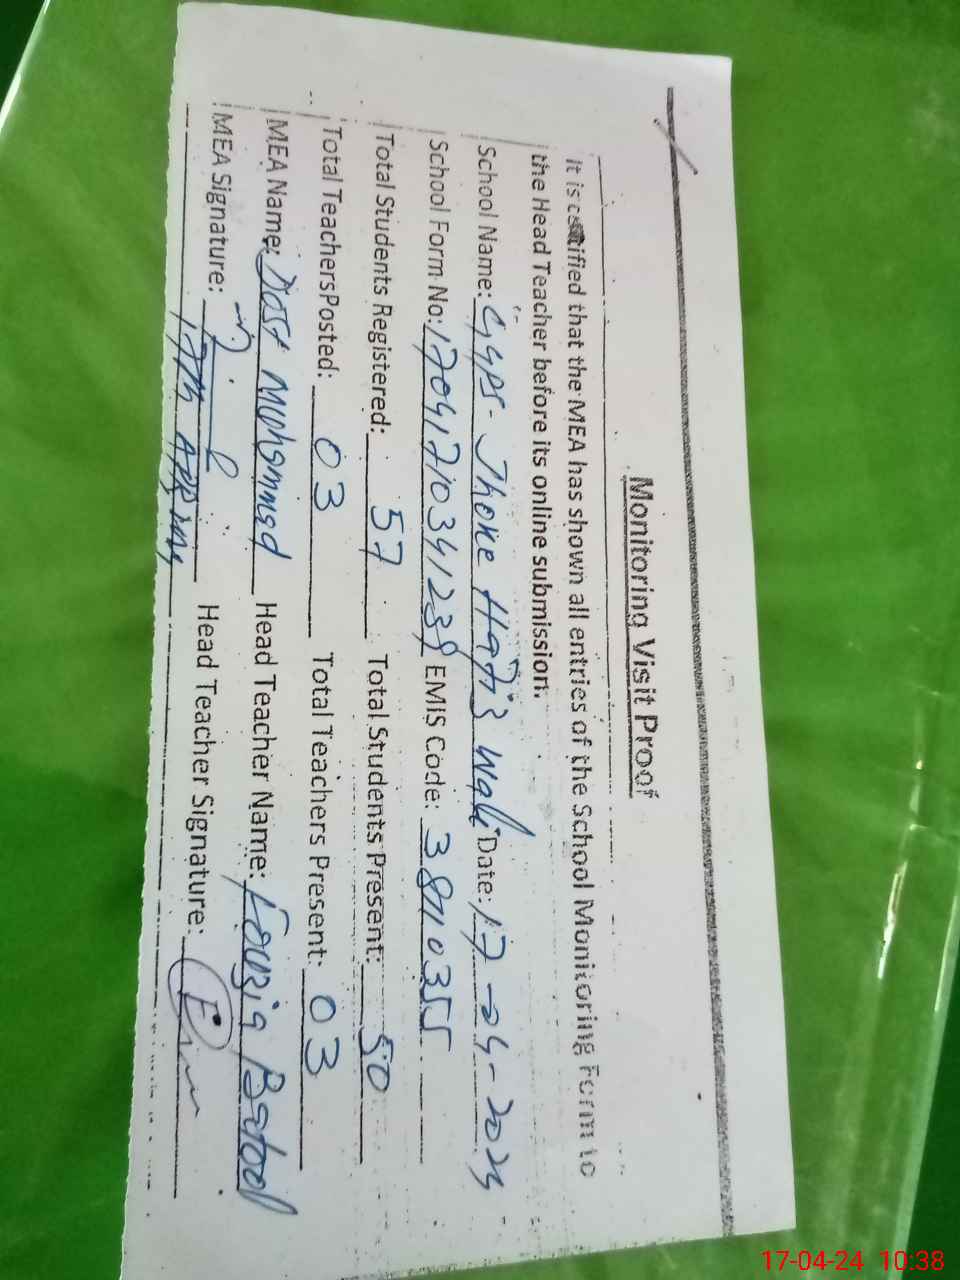 Monitoring Visit Proof
It is certified that the MEA has shown all entries of the School Monitoring Form to
the Head Teacher before its online submission.
School Name: GGPS- Jhoke Hafiz Wali Date: 17-04-2024
School Form No: EMIS Code:
Total Students Registered: 57 Total Students Present: 50
Total TeachersPosted: 03 Total Teachers Present: 03
MEA Name: Dost Muhammad Head Teacher Name: Fouzia Batool
MEA Signature: Head Teacher Signature:
17-04-24 10:38